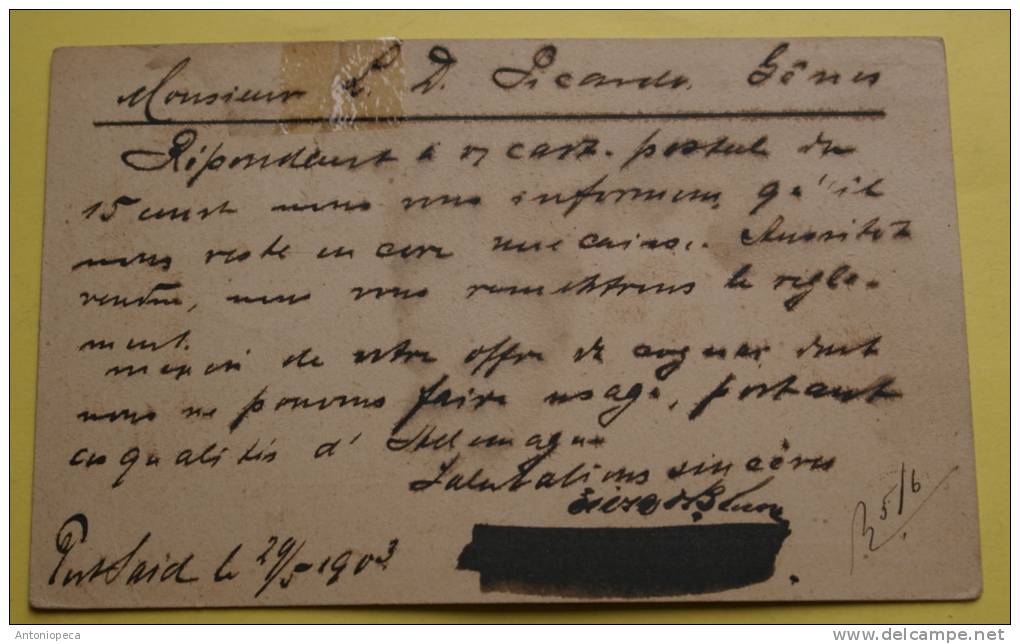 Monsieur L. D. Picardo. Gênes
Répondant à v/ cart. postal du
15 court nous vous informons qu'il
nous reste encore une caisse. Aussitot
vendue, nous vous remettrons le regle-
ment.
merci de votre offre de cognac dont
nous ne pouvons faire usage, portant
ces qualités d'Allemagne
Salutations sincères
Port Said le 29/5 1903
25/6
Antoniopeca
http://www.delcampe.net